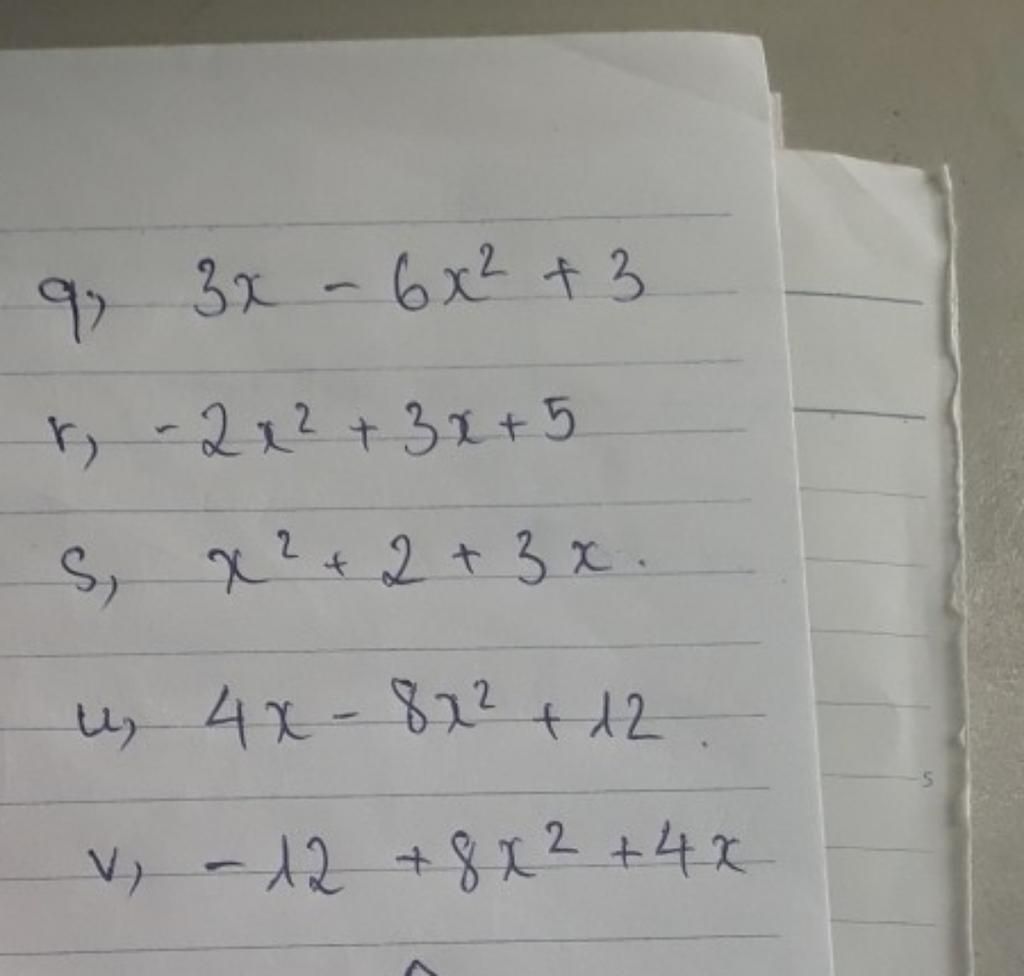 q, 3x - 6x² + 3
r, -2x² + 3x + 5
s, x² + 2 + 3x.
u, 4x - 8x² + 12.
v, -12 + 8x² + 4x